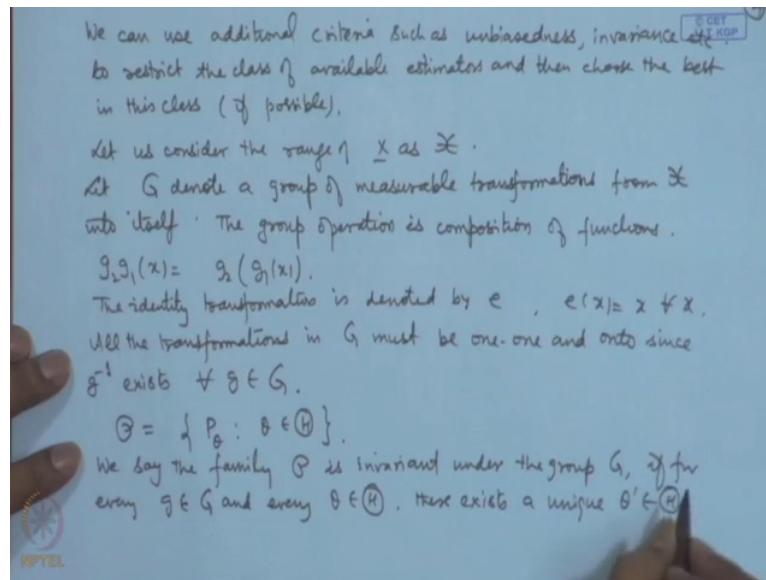 We can use additional criteria such as unbiasedness, invariance etc.
to restrict the class of available estimators and then choose the best
in this class (if possible).
Let us consider the range of X as 𝒳.
Let G denote a group of measurable transformations from 𝒳
into itself. The group operation is composition of functions.
g₂g₁(x) = g₂(g₁(x)).
The identity transformation is denoted by e, e(x) = x ∀ x.
All the transformations in G must be one-one and onto since
g⁻¹ exists ∀ g ∈ G.
𝒫 = { P_θ : θ ∈ Ⓗ }.
We say the family 𝒫 is invariant under the group G, if for
every g ∈ G and every θ ∈ Ⓗ. there exists a unique θ' ∈ Ⓗ
© CET
I.I.T. KGP
NPTEL